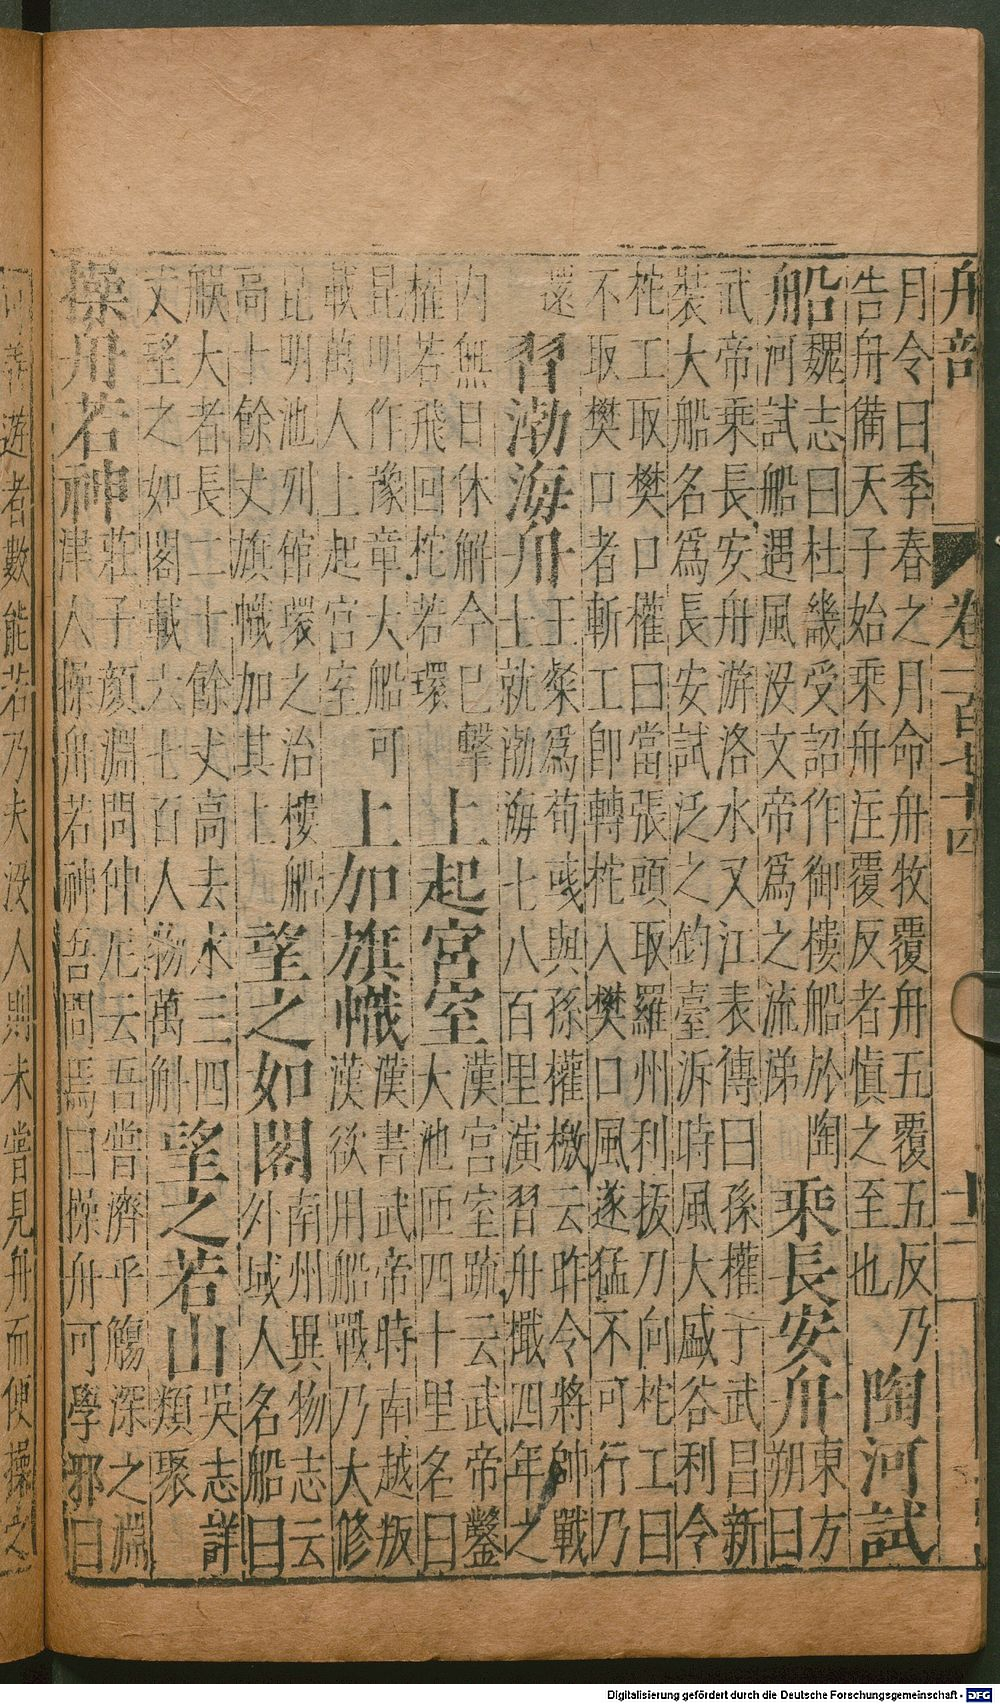 舟部 卷一百七十四 十二
月令曰季春之月命舟牧覆舟五覆五反乃
告舟備天子始乘舟注覆反者慎之至也
陶河試
船
魏志曰杜畿受詔作御樓船於陶
河試船遇風沒文帝為之流涕
乘長安舟
東方
朔曰
武帝乘長安舟游洛水又江表傳曰孫權于武昌新
裝大船名為長安試泛之釣臺泝時風大盛谷利令
柁工取樊口權曰當張頭取羅州利拔刀向柁工曰
不取樊口者斬工卽轉柁入樊口風遂猛不可行乃
還
習渤海舟
王粲為荀彧與孫權檄云昨令將帥戰
士就渤海七八百里演習舟檝四年之
内無日休解今已擊
櫂若飛回柁若環
上起宮室
漢宮室疏云武帝鑿
大池匝四十里名曰
昆明作豫章大船可
載萬人上起宮室
上加旗幟
漢書武帝時南越叛
漢欲用船戰乃大修
昆明池列館環之治樓船
高十餘丈旗幟加其上
望之如閣
南州異物志云
外域人名船曰
大者長二十餘丈高去水三四
丈望之如閣載六七百人物萬斛
望之若山
吳志詳
類聚
操舟若神
莊子顏淵問仲尼云吾嘗濟乎觴深之淵
津人操舟若神吾問焉曰操舟可學邪曰
可善遊者數能若乃夫没人則未嘗見舟而便操之
Digitalisierung gefördert durch die Deutsche Forschungsgemeinschaft - DFG